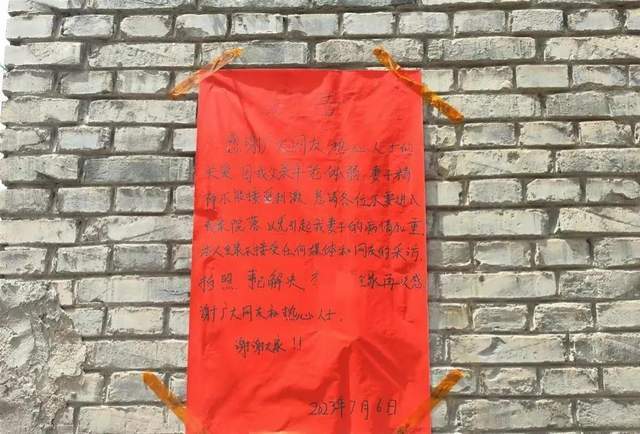 告
感谢广大网友热心人士的
关爱,因我父亲年老体弱,妻子精
神不能接受刺激,恳请各位不要进入
我家院落,以免引起我妻子的病情加重
本人至亲不接受任何媒体和网友的采访,
拍照 事已解决 再次感
谢广大网友和热心人士.
谢谢大家!!
2023年7月6日